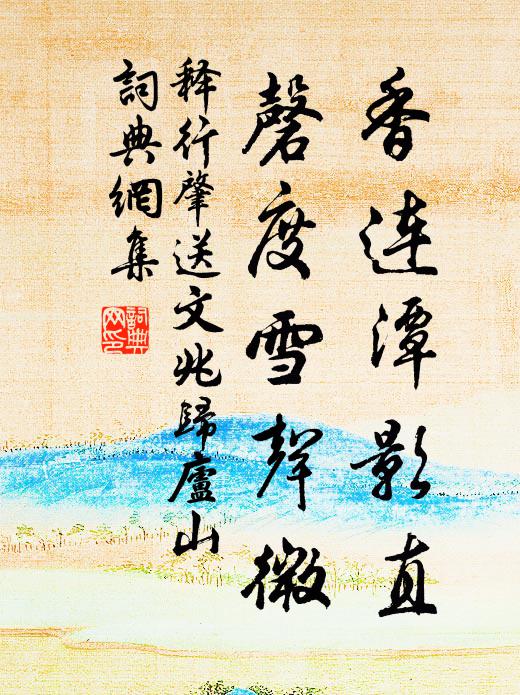 香連潭影直
磬度雪聲微
释行肇送文兆歸廬山
詞典網集
詞典
网印